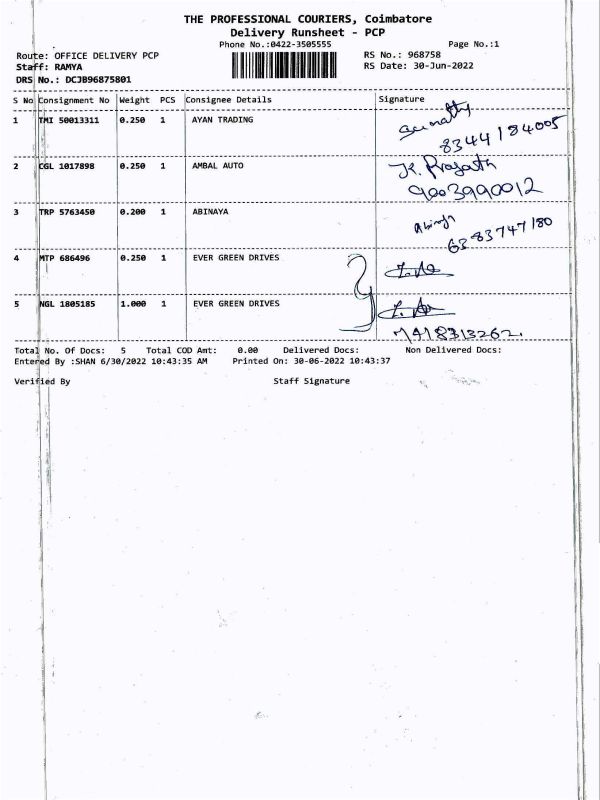 THE PROFESSIONAL COURIERS, Coimbatore
Delivery Runsheet - PCP
Phone No.:0422-3505555 Page No.:1
Route: OFFICE DELIVERY PCP RS No.: 968758
Staff: RAMYA RS Date: 30-Jun-2022
DRS No.: DCJB96875801
S No Consignment No Weight PCS Consignee Details Signature
1 TMI 50013311 0.250 1 AYAN TRADING
8344184005
2 CGL 1017898 0.250 1 AMBAL AUTO K. Prasath
9003990012
3 TRP 5763450 0.200 1 ABINAYA
6383747180
4 MTP 686496 0.250 1 EVER GREEN DRIVES
5 NGL 1805185 1.000 1 EVER GREEN DRIVES
7418313262.
Total No. Of Docs: 5 Total COD Amt: 0.00 Delivered Docs: Non Delivered Docs:
Entered By :SHAN 6/30/2022 10:43:35 AM Printed On: 30-06-2022 10:43:37
Verified By Staff Signature